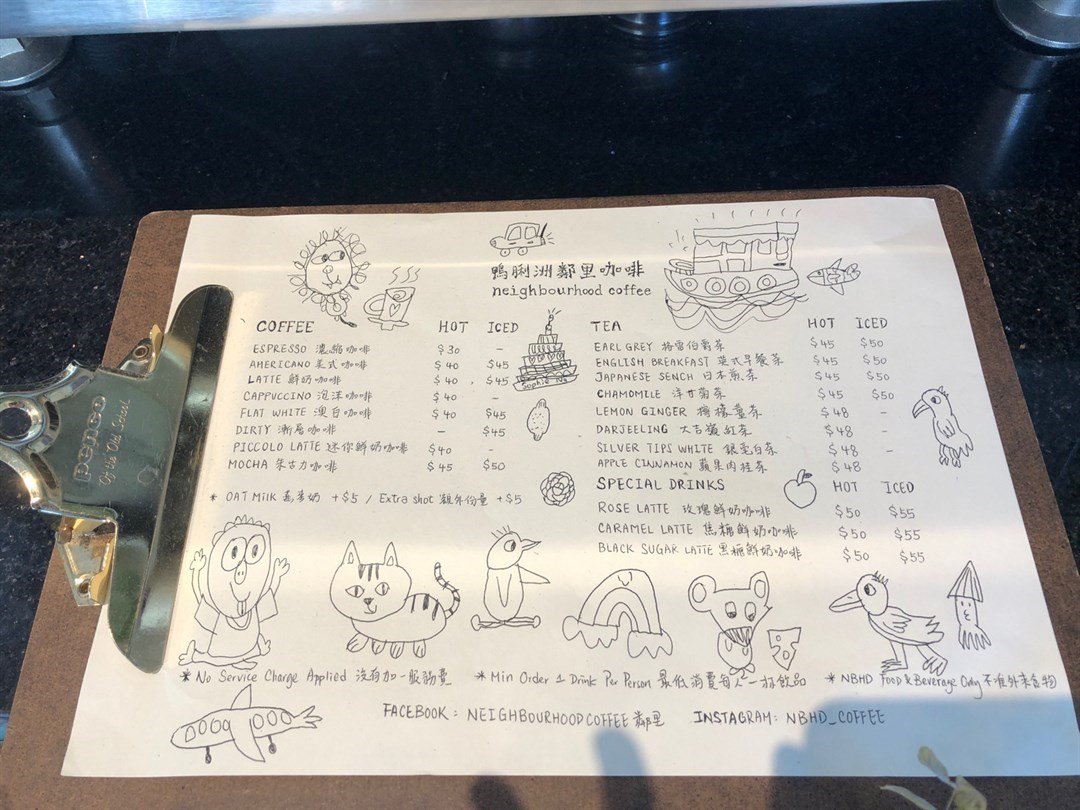 鴨脷洲鄰里咖啡
neighbourhood coffee
COFFEE HOT ICED
ESPRESSO 濃縮咖啡 $30 -
AMERICANO 美式咖啡 $40 $45
LATTE 鮮奶咖啡 $40 $45
CAPPUCCINO 泡沫咖啡 $40 -
FLAT WHITE 澳白咖啡 $40 $45
DIRTY 漸層咖啡 - $45
PICCOLO LATTE 迷你鮮奶咖啡 $40 -
MOCHA 朱古力咖啡 $45 $50
* OAT Milk 燕麥奶 +$5 / Extra shot 額外份量 +$5
Sophie
TEA HOT ICED
EARL GREY 格雷伯爵茶 $45 $50
ENGLISH BREAKFAST 英式早餐茶 $45 $50
JAPANESE SENCH 日本煎茶 $45 $50
CHAMOMILE 洋甘菊茶 $45 $50
LEMON GINGER 檸檬薑茶 $48 -
DARJEELING 大吉嶺紅茶 $48 -
SILVER TIPS WHITE 銀毫白茶 $48 -
APPLE CINNAMON 蘋果肉桂茶 $48
SPECIAL DRINKS HOT ICED
ROSE LATTE 玫瑰鮮奶咖啡 $50 $55
CARAMEL LATTE 焦糖鮮奶咖啡 $50 $55
BLACK SUGAR LATTE 黑糖鮮奶咖啡 $50 $55
* No Service Charge Applied 沒有加一服務費 * Min Order 1 Drink Per Person 最低消費每人一杯飲品 * NBHD Food & Beverage Only 不准外來食物
FACEBOOK: NEIGHBOURHOODCOFFEE鄰里 INSTAGRAM: NBHD_COFFEE
penco
Of the Old School